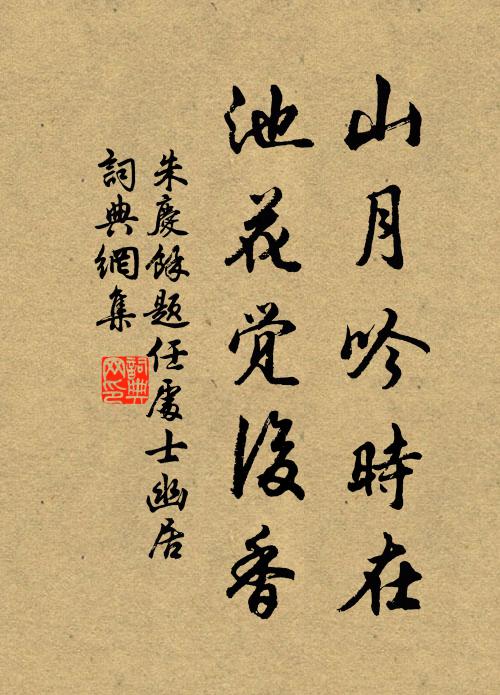 山月吟時在
池花觉後香
朱慶餘題任處士幽居
詞典網集
詞典網印